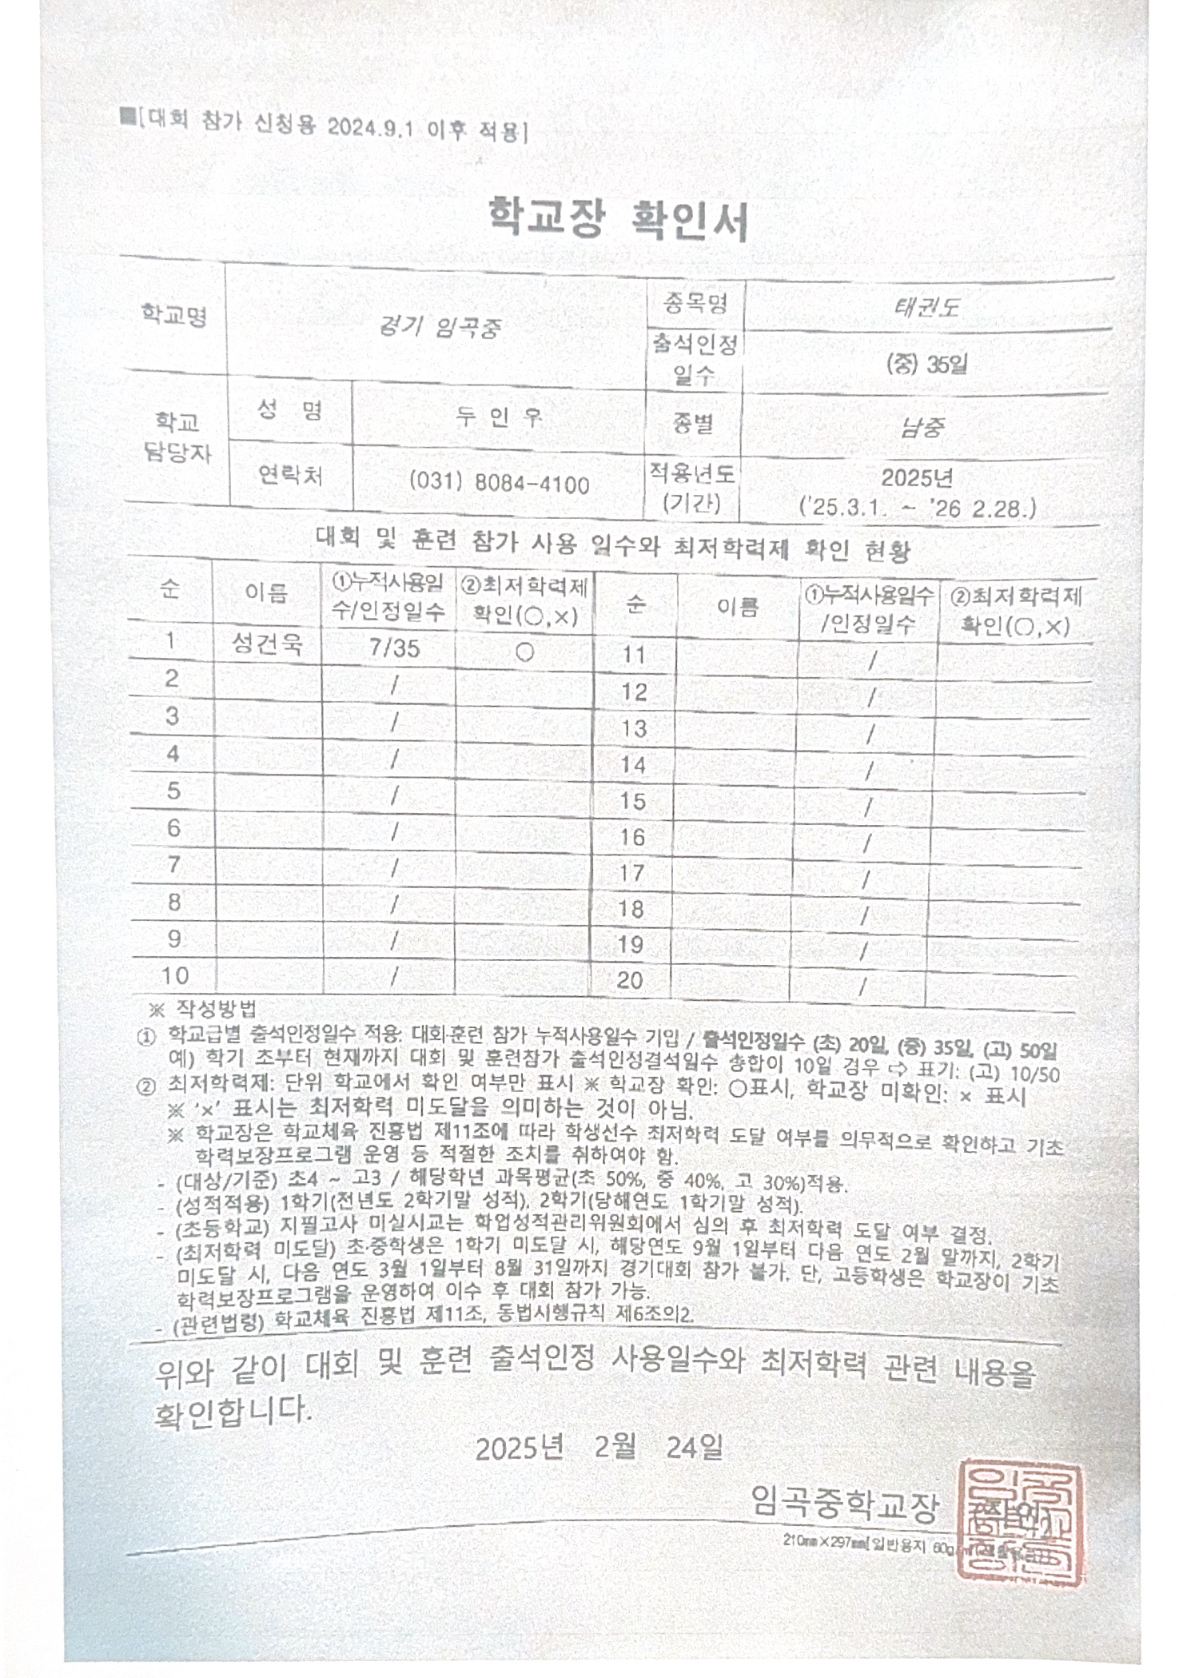 ■[대회 참가 신청용 2024.9.1 이후 적용]
학교장 확인서
학교명
경기 임곡중
종목명
태권도
출석인정
일수
(중) 35일
학교
담당자
성 명
두 인 우
종별
남중
연락처
(031) 8084-4100
적용년도
(기간)
2025년
('25.3.1. ~ '26 2.28.)
대회 및 훈련 참가 사용 일수와 최저학력제 확인 현황
순 이름 ①누적사용일 ②최저학력제 순 이름 ①누적사용일수 ②최저학력제
수/인정일수 확인(○,×) /인정일수 확인(○,×)
1 성건욱 7/35 ○ 11 /
2 / 12 /
3 / 13 /
4 / 14 /
5 / 15 /
6 / 16 /
7 / 17 /
8 / 18 /
9 / 19 /
10 / 20 /
※ 작성방법
① 학교급별 출석인정일수 적용: 대회·훈련 참가 누적사용일수 기입 / 출석인정일수 (초) 20일, (중) 35일, (고) 50일
예) 학기 초부터 현재까지 대회 및 훈련참가 출석인정결석일수 총합이 10일 경우 ⇨ 표기: (고) 10/50
② 최저학력제: 단위 학교에서 확인 여부만 표시 ※ 학교장 확인: ○표시, 학교장 미확인: × 표시
※ '×' 표시는 최저학력 미도달을 의미하는 것이 아님.
※ 학교장은 학교체육 진흥법 제11조에 따라 학생선수 최저학력 도달 여부를 의무적으로 확인하고 기초
학력보장프로그램 운영 등 적절한 조치를 취하여야 함.
- (대상/기준) 초4 ~ 고3 / 해당학년 과목평균(초 50%, 중 40%, 고 30%)적용.
- (성적적용) 1학기(전년도 2학기말 성적), 2학기(당해연도 1학기말 성적).
- (초등학교) 지필고사 미실시교는 학업성적관리위원회에서 심의 후 최저학력 도달 여부 결정.
- (최저학력 미도달) 초·중학생은 1학기 미도달 시, 해당연도 9월 1일부터 다음 연도 2월 말까지, 2학기
미도달 시, 다음 연도 3월 1일부터 8월 31일까지 경기대회 참가 불가. 단, 고등학생은 학교장이 기초
학력보장프로그램을 운영하여 이수 후 대회 참가 가능.
- (관련법령) 학교체육 진흥법 제11조, 동법시행규칙 제6조의2.
위와 같이 대회 및 훈련 출석인정 사용일수와 최저학력 관련 내용을
확인합니다.
2025년 2월 24일
임곡중학교장 (직인)
210㎜×297㎜[일반용지 60g/